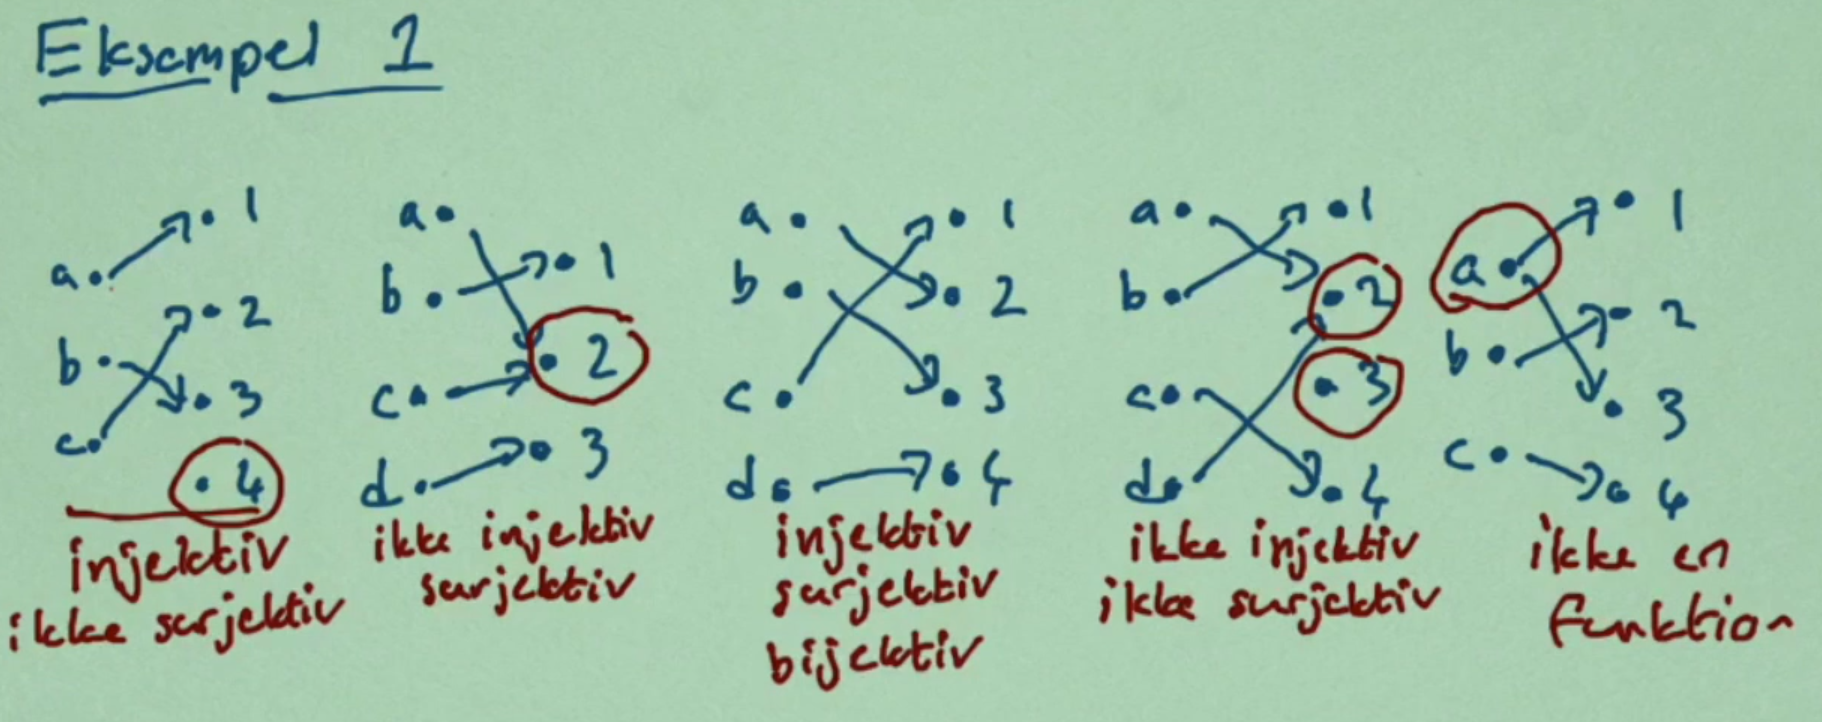 Eksempel 1
a 1
b 2
c 3
4
injektiv
ikke surjektiv
a
b 1
c 2
d 3
ikke injektiv
surjektiv
a 1
b 2
c 3
d 4
injektiv
surjektiv
bijektiv
a 1
b 2
c 3
d 4
ikke injektiv
ikke surjektiv
a 1
b 2
3
c 4
ikke en
funktion